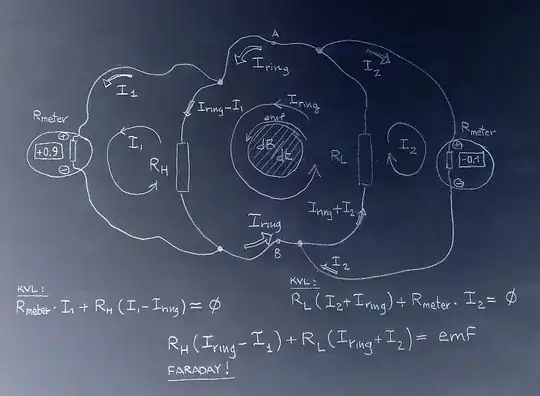 A
I₁
I ring
I₂
R meter
+0.9
+
−
I ring - I₁
I ring
emf
dB
dt
I₁
R_H
R_L
I₂
R meter
-0.1
+
−
I ring + I₂
I ring
B
I₂
KVL:
R meter · I₁ + R_H (I₁ - I ring) = ∅
KVL:
R_L (I₂ + I ring) + R meter · I₂ = ∅
R_H (I ring - I₁) + R_L (I ring + I₂) = emf
FARADAY!